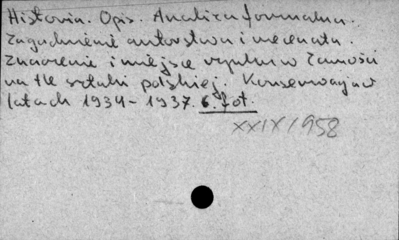 Historia. Opis. Analiza formalna.
Zagadnienie autorstwa i mecenata.
Znaczenie i miejsce w Zamości
na tle sztuki polskiej. Konserwacja w
latach 1934-1937. 6. fot.
XXIX/1958